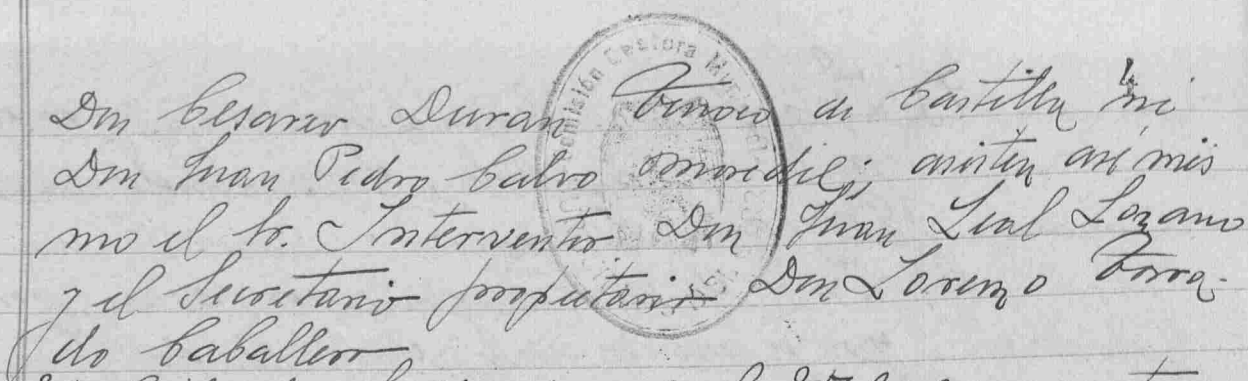 Don Cesareo Duran de Castilla ni
Don Juan Pedro Calvo asisten asi mis
mo el Sr. Interventor Don Juan Leal Lozano
y el Secretario propietario Don Lorenzo Torra-
do Caballero
Comisión Gestora